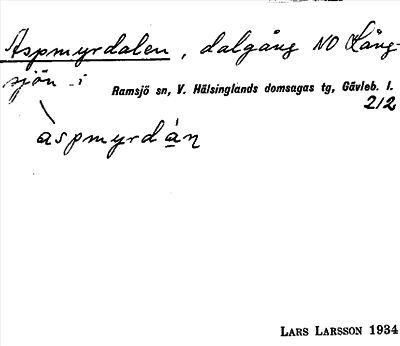 Aspmyrdalen, dalgång NO Lång-
sjön i
Ramsjö sn, V. Hälsinglands domsagas tg, Gävleb. l.
212
àspmyrdáṇ
LARS LARSSON 1934